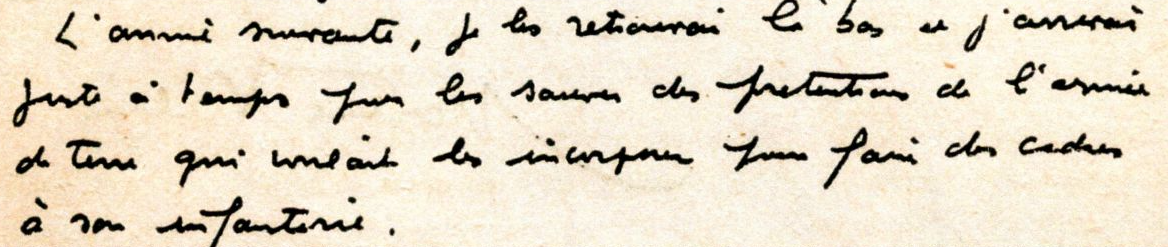 L'année suivante, je les retrouvai là bas et j'arrivai
juste à temps pour les sauver des prétentions de l'armée
de terre qui voulait les incorporer pour faire des cadres
à son infanterie.